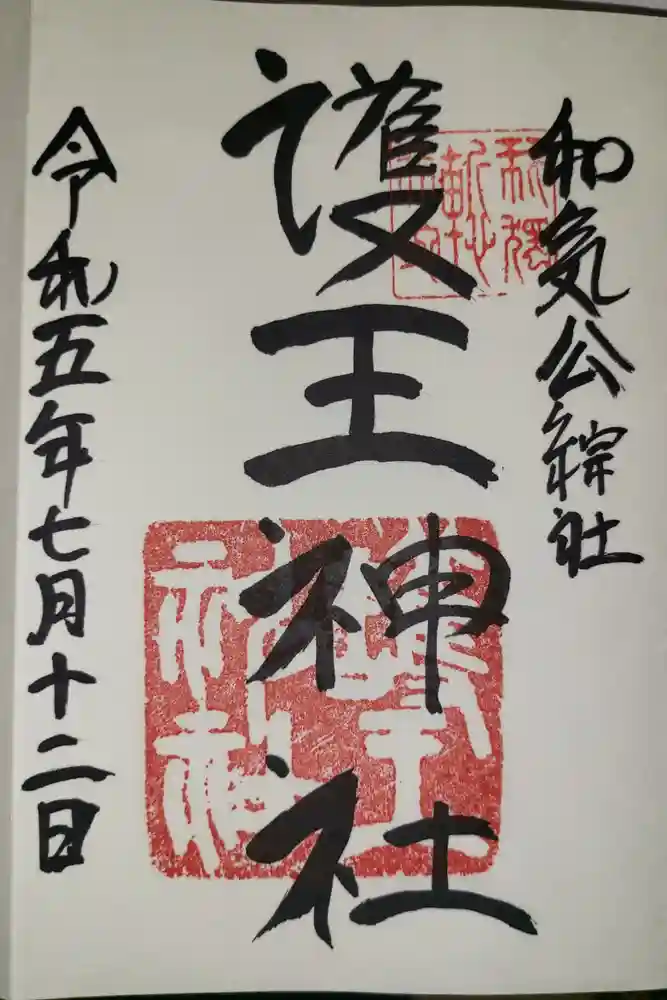 和気公綜社
護王神社
令和五年七月十二日